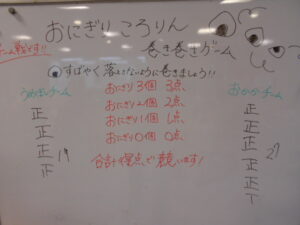 おにぎりころりん
巻き巻きゲーム
チーム戦です!!
すばやく落とさないように巻きましょう!!
うめぼしチーム
おにぎり3個 3点
おにぎり2個 2点
おにぎり1個 1点
おにぎり0個 0点
合計得点で競います!
正
正
正
正
19
おかかチーム
正
正
正
正
正
T
27